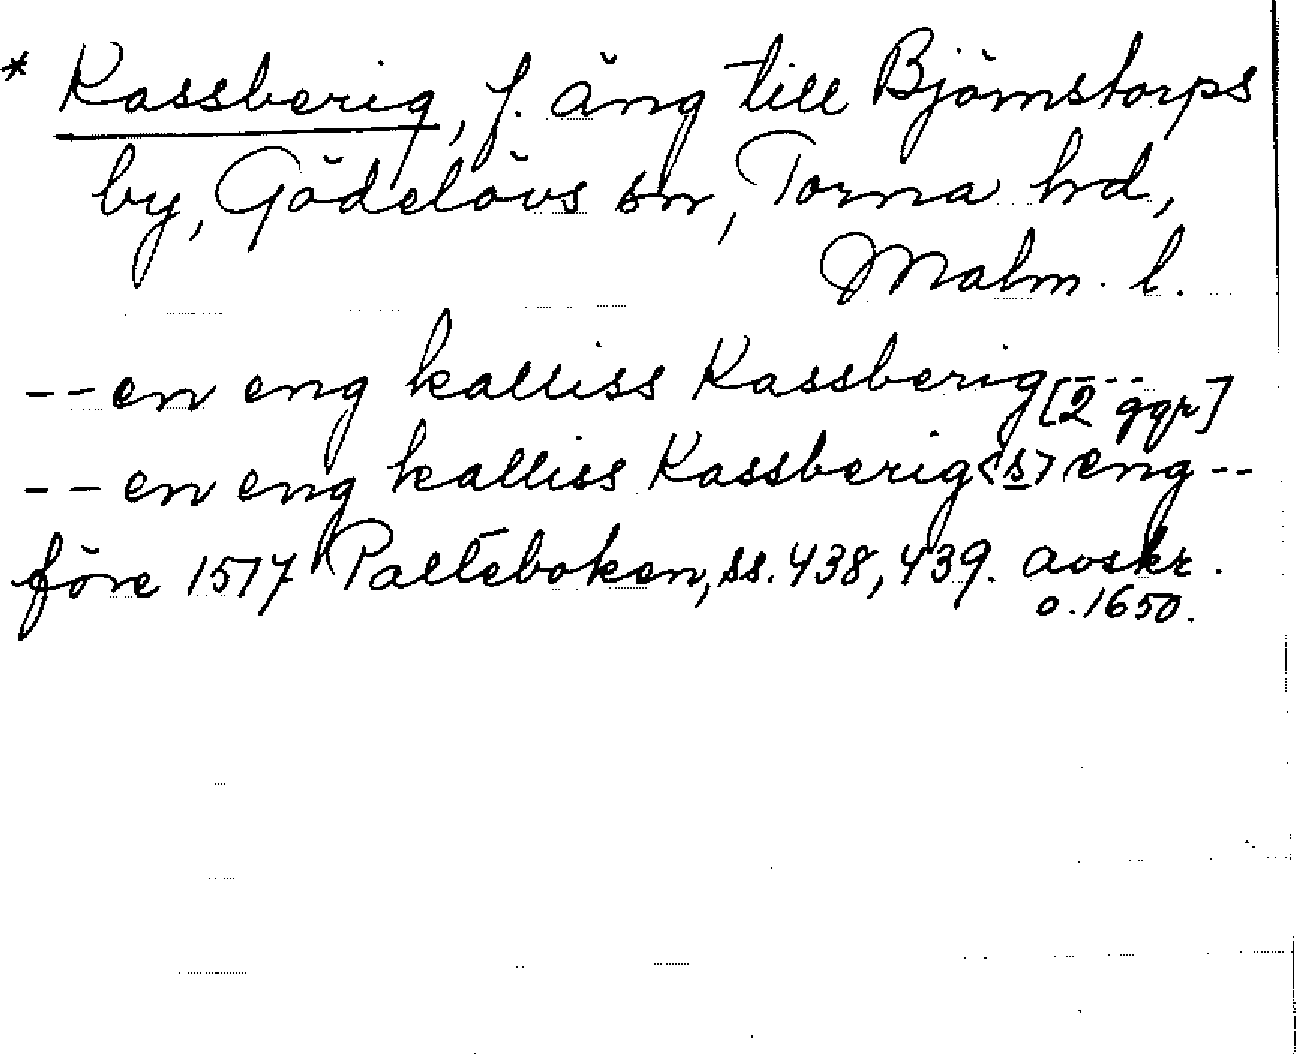 * Kassberig, f. äng till Björnstorps
by, Gödelövs sn, Torna hd,
Malm. l.
-- en eng kalliss Kassberig --- [2 ggr]
-- en eng kalliss Kassberig<s> eng --
före 1517 Palteboken, ss. 438, 439. avskr.
o. 1650.